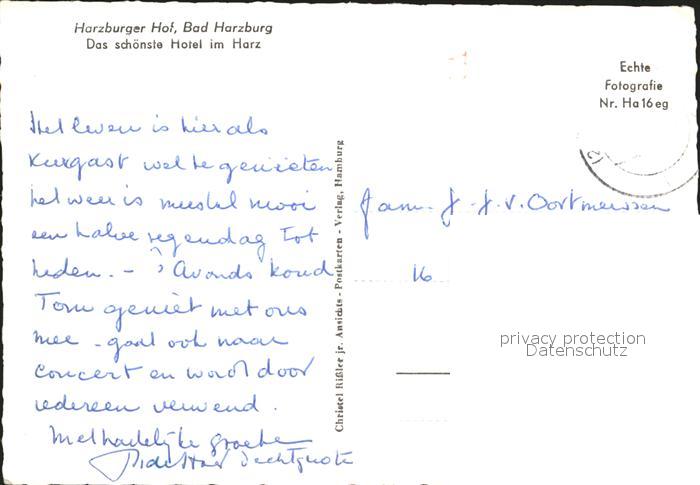 Harzburger Hof, Bad Harzburg
Das schönste Hotel im Harz
Echte
Fotografie
Nr. Ha 16 eg
Het leven is hier als
Kurgast wel te genieten
het weer is meestal mooi
een halve regendag tot
heden. - 's Avonds koud
Tom geniet met ons
mee - gaat ook naar
concert en wordt door
iedereen verwend.
Met hartelijke groeten
Christel Rißler jr. Ansichts - Postkarten - Verlag, Hamburg
Fam. J. J. v. Oortmerssen
16
privacy protection
Datenschutz